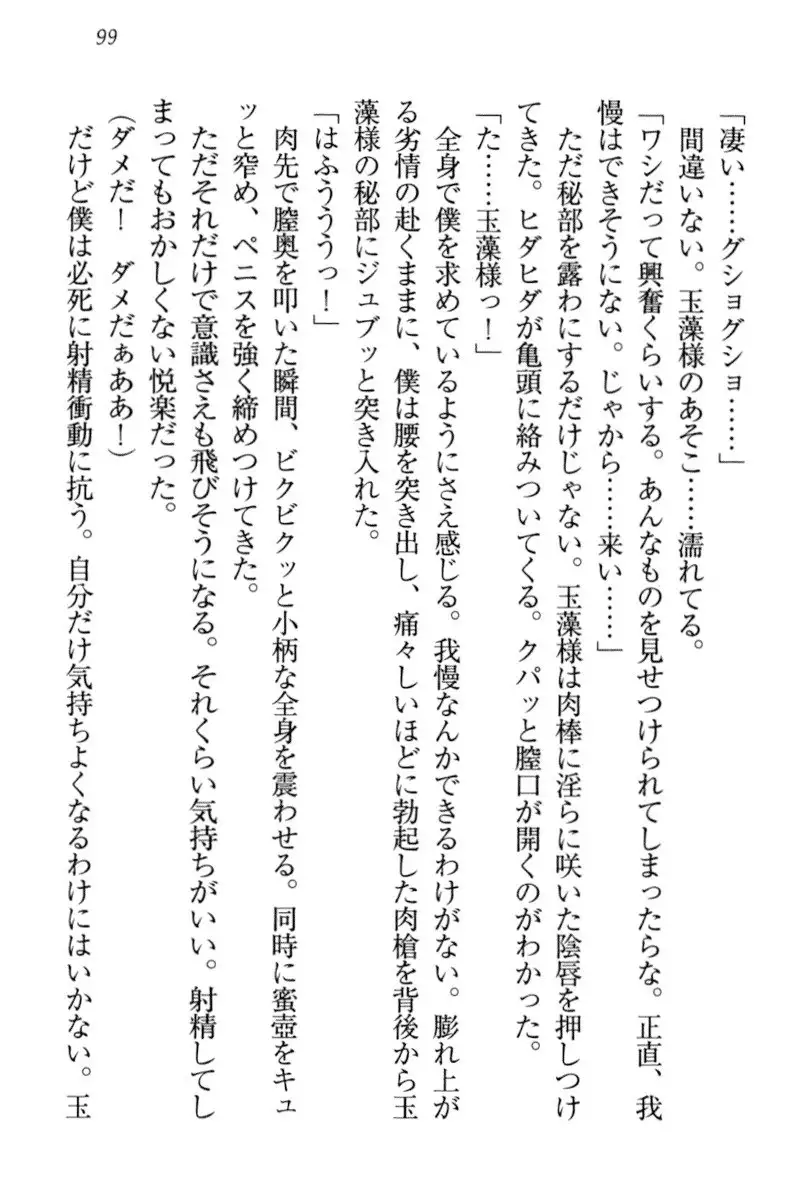 99
「凄い……グショグショ……」
間違いない。玉藻様のあそこ……濡れてる。
「ワシだって興奮くらいする。あんなものを見せつけられてしまったらな。正直、我
慢はできそうにない。じゃから……来い……」
ただ秘部を露わにするだけじゃない。玉藻様は肉棒に淫らに咲いた陰唇を押しつけ
てきた。ヒダヒダが亀頭に絡みついてくる。クパッと膣口が開くのがわかった。
「た……玉藻様っ！」
全身で僕を求めているようにさえ感じる。我慢なんかできるわけがない。膨れ上が
る劣情の赴くままに、僕は腰を突き出し、痛々しいほどに勃起した肉槍を背後から玉
藻様の秘部にジュブッと突き入れた。
「はふうううっ！」
肉先で膣奥を叩いた瞬間、ビクビクッと小柄な全身を震わせる。同時に蜜壺をキュ
ッと窄め、ペニスを強く締めつけてきた。
ただそれだけで意識さえも飛びそうになる。それくらい気持ちがいい。射精してし
まってもおかしくない悦楽だった。
（ダメだ！　ダメだぁああ！）
だけど僕は必死に射精衝動に抗う。自分だけ気持ちよくなるわけにはいかない。玉